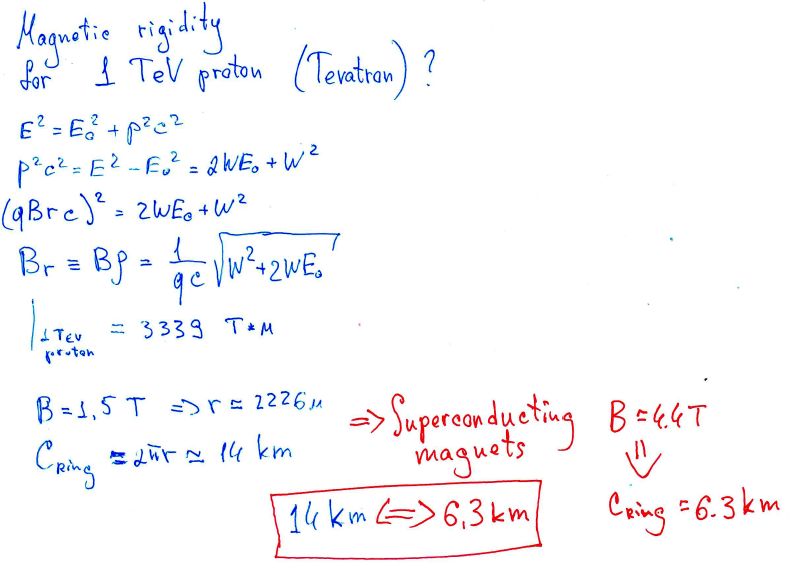 Magnetic rigidity
for 1 TeV proton (Tevatron) ?
E² = E₀² + p²c²
p²c² = E² - E₀² = 2WE₀ + W²
(qBrc)² = 2WE₀ + W²
Br ≡ Bρ = 1/qc √W²+2WE₀
|1 TeV proton = 3339 T*м
B = 1,5 T => r = 2226 м
C Ring = 2πr ≃ 14 km
=> Superconducting magnets
B = 4.4 T
⇓
C Ring = 6.3 km
14 km <=> 6,3 km